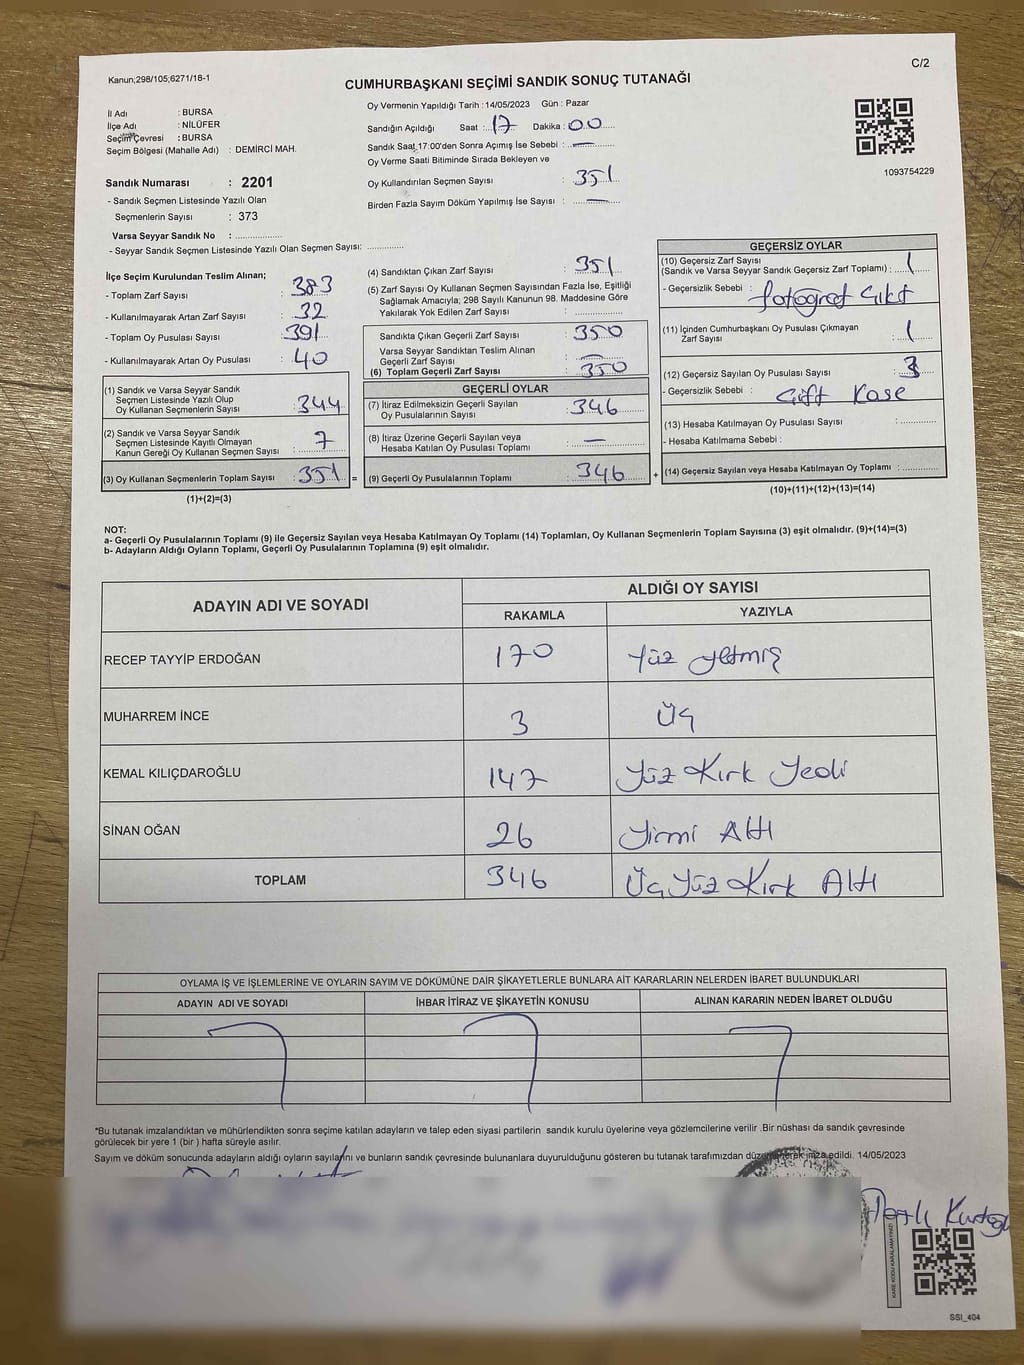 Kanun;298/105;6271/18-1
C/2
CUMHURBAŞKANI SEÇİMİ SANDIK SONUÇ TUTANAĞI
İl Adı : BURSA
İlçe Adı : NİLÜFER
Seçim Çevresi : BURSA
Seçim Bölgesi (Mahalle Adı) : DEMİRCİ MAH.
Sandık Numarası : 2201
- Sandık Seçmen Listesinde Yazılı Olan
Seçmenlerin Sayısı : 373
Varsa Seyyar Sandık No : ..............
- Seyyar Sandık Seçmen Listesinde Yazılı Olan Seçmen Sayısı: ............
Oy Vermenin Yapıldığı Tarih : 14/05/2023 Gün : Pazar
Sandığın Açıldığı Saat : 17 Dakika : 00
Sandık Saat 17:00'den Sonra Açımış İse Sebebi : —
Oy Verme Saati Bitiminde Sırada Bekleyen ve
Oy Kullandırılan Seçmen Sayısı : 351
Birden Fazla Sayım Döküm Yapılmış İse Sayısı : —
1093754229
İlçe Seçim Kurulundan Teslim Alınan;
- Toplam Zarf Sayısı : 383
- Kullanılmayarak Artan Zarf Sayısı : 32
- Toplam Oy Pusulası Sayısı : 391
- Kullanılmayarak Artan Oy Pusulası : 40
(1) Sandık ve Varsa Seyyar Sandık
Seçmen Listesinde Yazılı Olup
Oy Kullanan Seçmenlerin Sayısı : 344
(2) Sandık ve Varsa Seyyar Sandık
Seçmen Listesinde Kayıtlı Olmayan
Kanun Gereği Oy Kullanan Seçmen Sayısı : 7
(3) Oy Kullanan Seçmenlerin Toplam Sayısı : 351 =
(1)+(2)=(3)
(4) Sandıktan Çıkan Zarf Sayısı : 351
(5) Zarf Sayısı Oy Kullanan Seçmen Sayısından Fazla İse, Eşitliği
Sağlamak Amacıyla; 298 Sayılı Kanunun 98. Maddesine Göre
Yakılarak Yok Edilen Zarf Sayısı : ..............
Sandıkta Çıkan Geçerli Zarf Sayısı : 350
Varsa Seyyar Sandıktan Teslim Alınan
Geçerli Zarf Sayısı : —
(6) Toplam Geçerli Zarf Sayısı : 350
GEÇERLİ OYLAR
(7) İtiraz Edilmeksizin Geçerli Sayılan
Oy Pusulalarının Sayısı : 346
(8) İtiraz Üzerine Geçerli Sayılan veya
Hesaba Katılan Oy Pusulası Toplamı : —
(9) Geçerli Oy Pusulalarının Toplamı : 346 +
GEÇERSİZ OYLAR
(10) Geçersiz Zarf Sayısı
(Sandık ve Varsa Seyyar Sandık Geçersiz Zarf Toplamı) : 1
- Geçersizlik Sebebi : fotoğraf Çıktı
(11) İçinden Cumhurbaşkanı Oy Pusulası Çıkmayan
Zarf Sayısı : 1
(12) Geçersiz Sayılan Oy Pusulası Sayısı : 3
- Geçersizlik Sebebi : Çift Kaşe
(13) Hesaba Katılmayan Oy Pusulası Sayısı : ............
- Hesaba Katılmama Sebebi :
(14) Geçersiz Sayılan veya Hesaba Katılmayan Oy Toplamı : ............
(10)+(11)+(12)+(13)=(14)
NOT:
a- Geçerli Oy Pusulalarının Toplamı (9) ile Geçersiz Sayılan veya Hesaba Katılmayan Oy Toplamı (14) Toplamları, Oy Kullanan Seçmenlerin Toplam Sayısına (3) eşit olmalıdır. (9)+(14)=(3)
b- Adayların Aldığı Oyların Toplamı, Geçerli Oy Pusulalarının Toplamına (9) eşit olmalıdır.
ADAYIN ADI VE SOYADI ALDIĞI OY SAYISI
RAKAMLA YAZIYLA
RECEP TAYYİP ERDOĞAN 170 Yüz yetmiş
MUHARREM İNCE 3 Üç
KEMAL KILIÇDAROĞLU 147 Yüz Kırk Yedi
SİNAN OĞAN 26 Yirmi Altı
TOPLAM 346 Üç Yüz Kırk Altı
OYLAMA İŞ VE İŞLEMLERİNE VE OYLARIN SAYIM VE DÖKÜMÜNE DAİR ŞİKAYETLERLE BUNLARA AİT KARARLARIN NELERDEN İBARET BULUNDUKLARI
ADAYIN ADI VE SOYADI İHBAR İTİRAZ VE ŞİKAYETİN KONUSU ALINAN KARARIN NEDEN İBARET OLDUĞU
*Bu tutanak imzalandıktan ve mühürlendikten sonra seçime katılan adayların ve talep eden siyasi partilerin sandık kurulu üyelerine veya gözlemcilerine verilir .Bir nüshası da sandık çevresinde
görülecek bir yere 1 (bir ) hafta süreyle asılır.
Sayım ve döküm sonucunda adayların aldığı oyların sayılarını ve bunların sandık çevresinde bulunanlara duyurulduğunu gösteren bu tutanak tarafımızdan düzenlenerek imza edildi. 14/05/2023
SSI_404